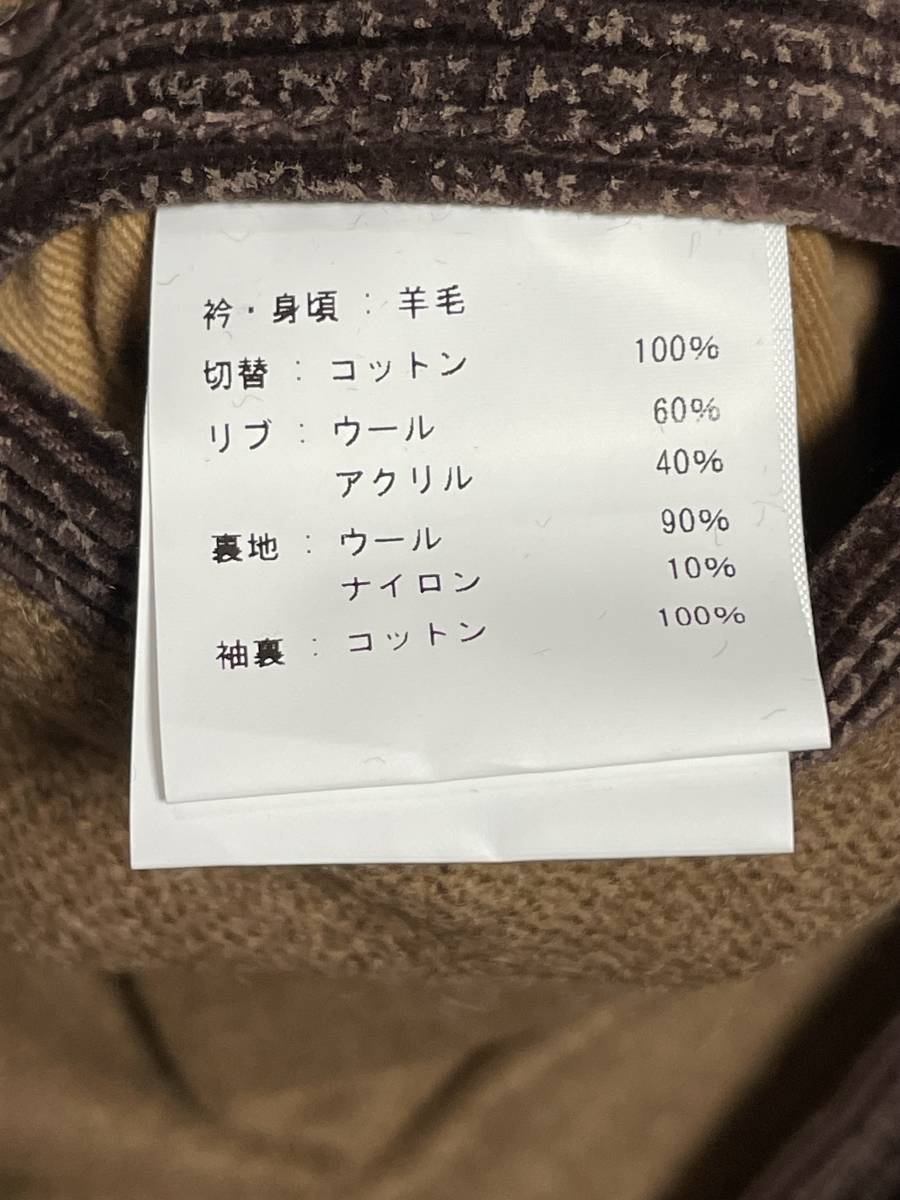 衿・身頃 : 羊毛
切替 : コットン 100%
リブ : ウール 60%
アクリル 40%
裏地 : ウール 90%
ナイロン 10%
袖裏 : コットン 100%